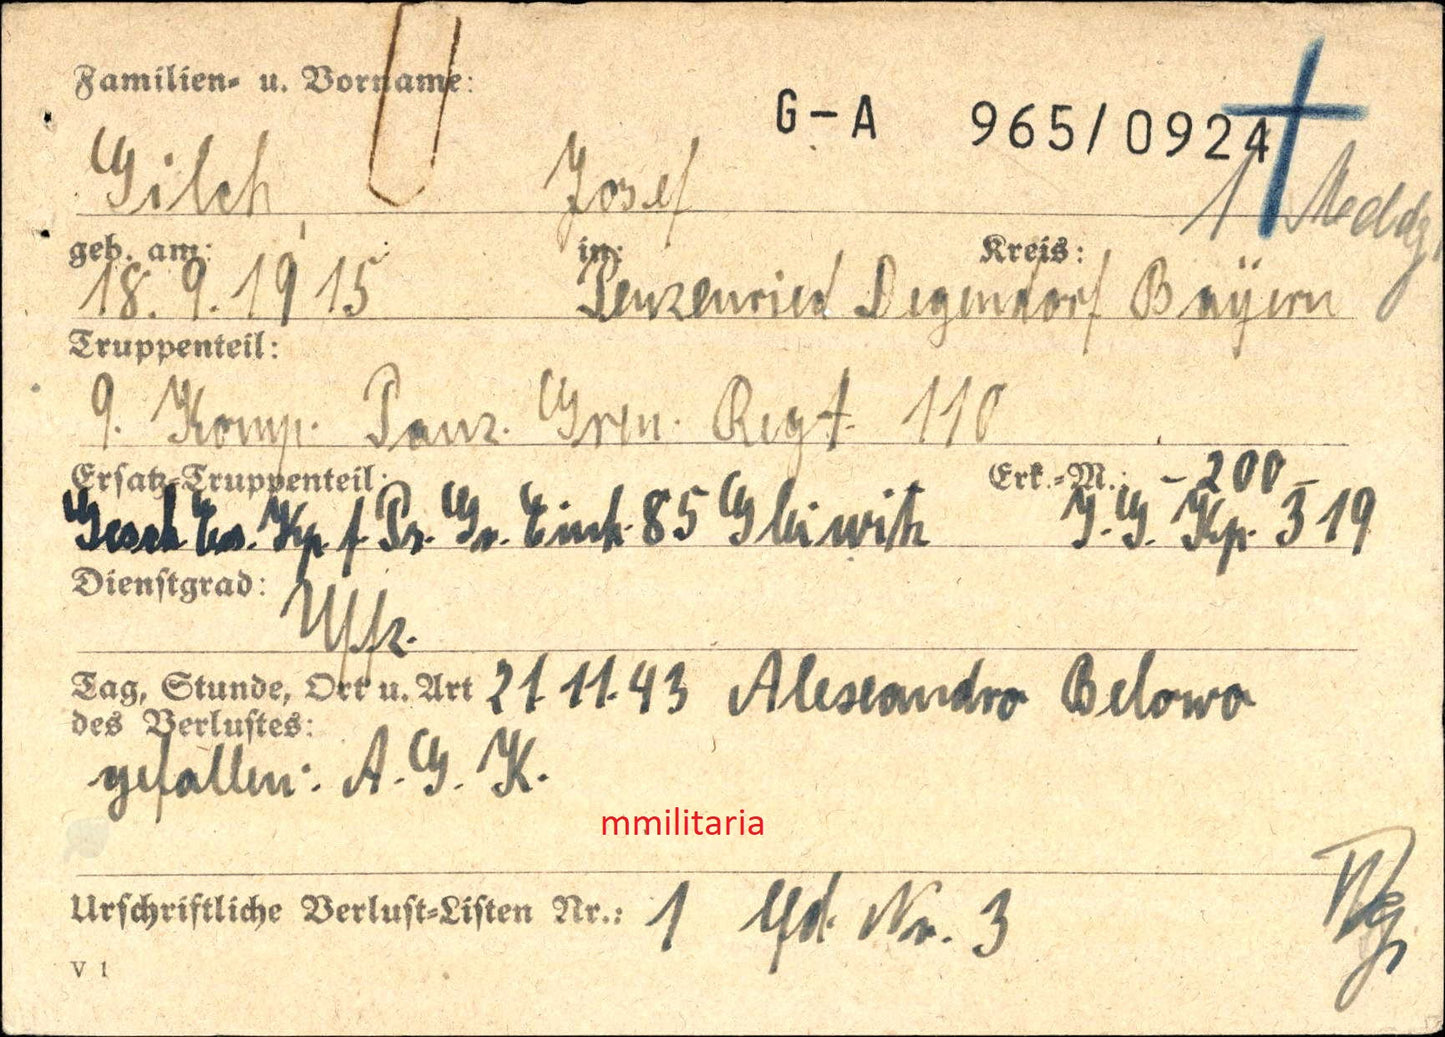 Familien- u. Vorname:
G-A 965/0924
Gilch Josef 1 Meldg.
geb. am: in: Kreis:
18. 9. 1915 Penzenried Degendorf Bayern
Truppenteil:
9. Komp. Panz. Gren. Regt. 110
Ersatz-Truppenteil: Erk.-M.: -200-
Kp. f. Pz. Gr. Einh. 85 Gleiwitz I.G. Kp. 319
Dienstgrad: Uffz.
Tag, Stunde, Ort u. Art 21.11.43 Alexandro Belowo
des Verlustes:
gefallen: A.G.K.
mmilitaria
Urschriftliche Verlust-Listen Nr.: 1 lfd. Nr. 3
V 1